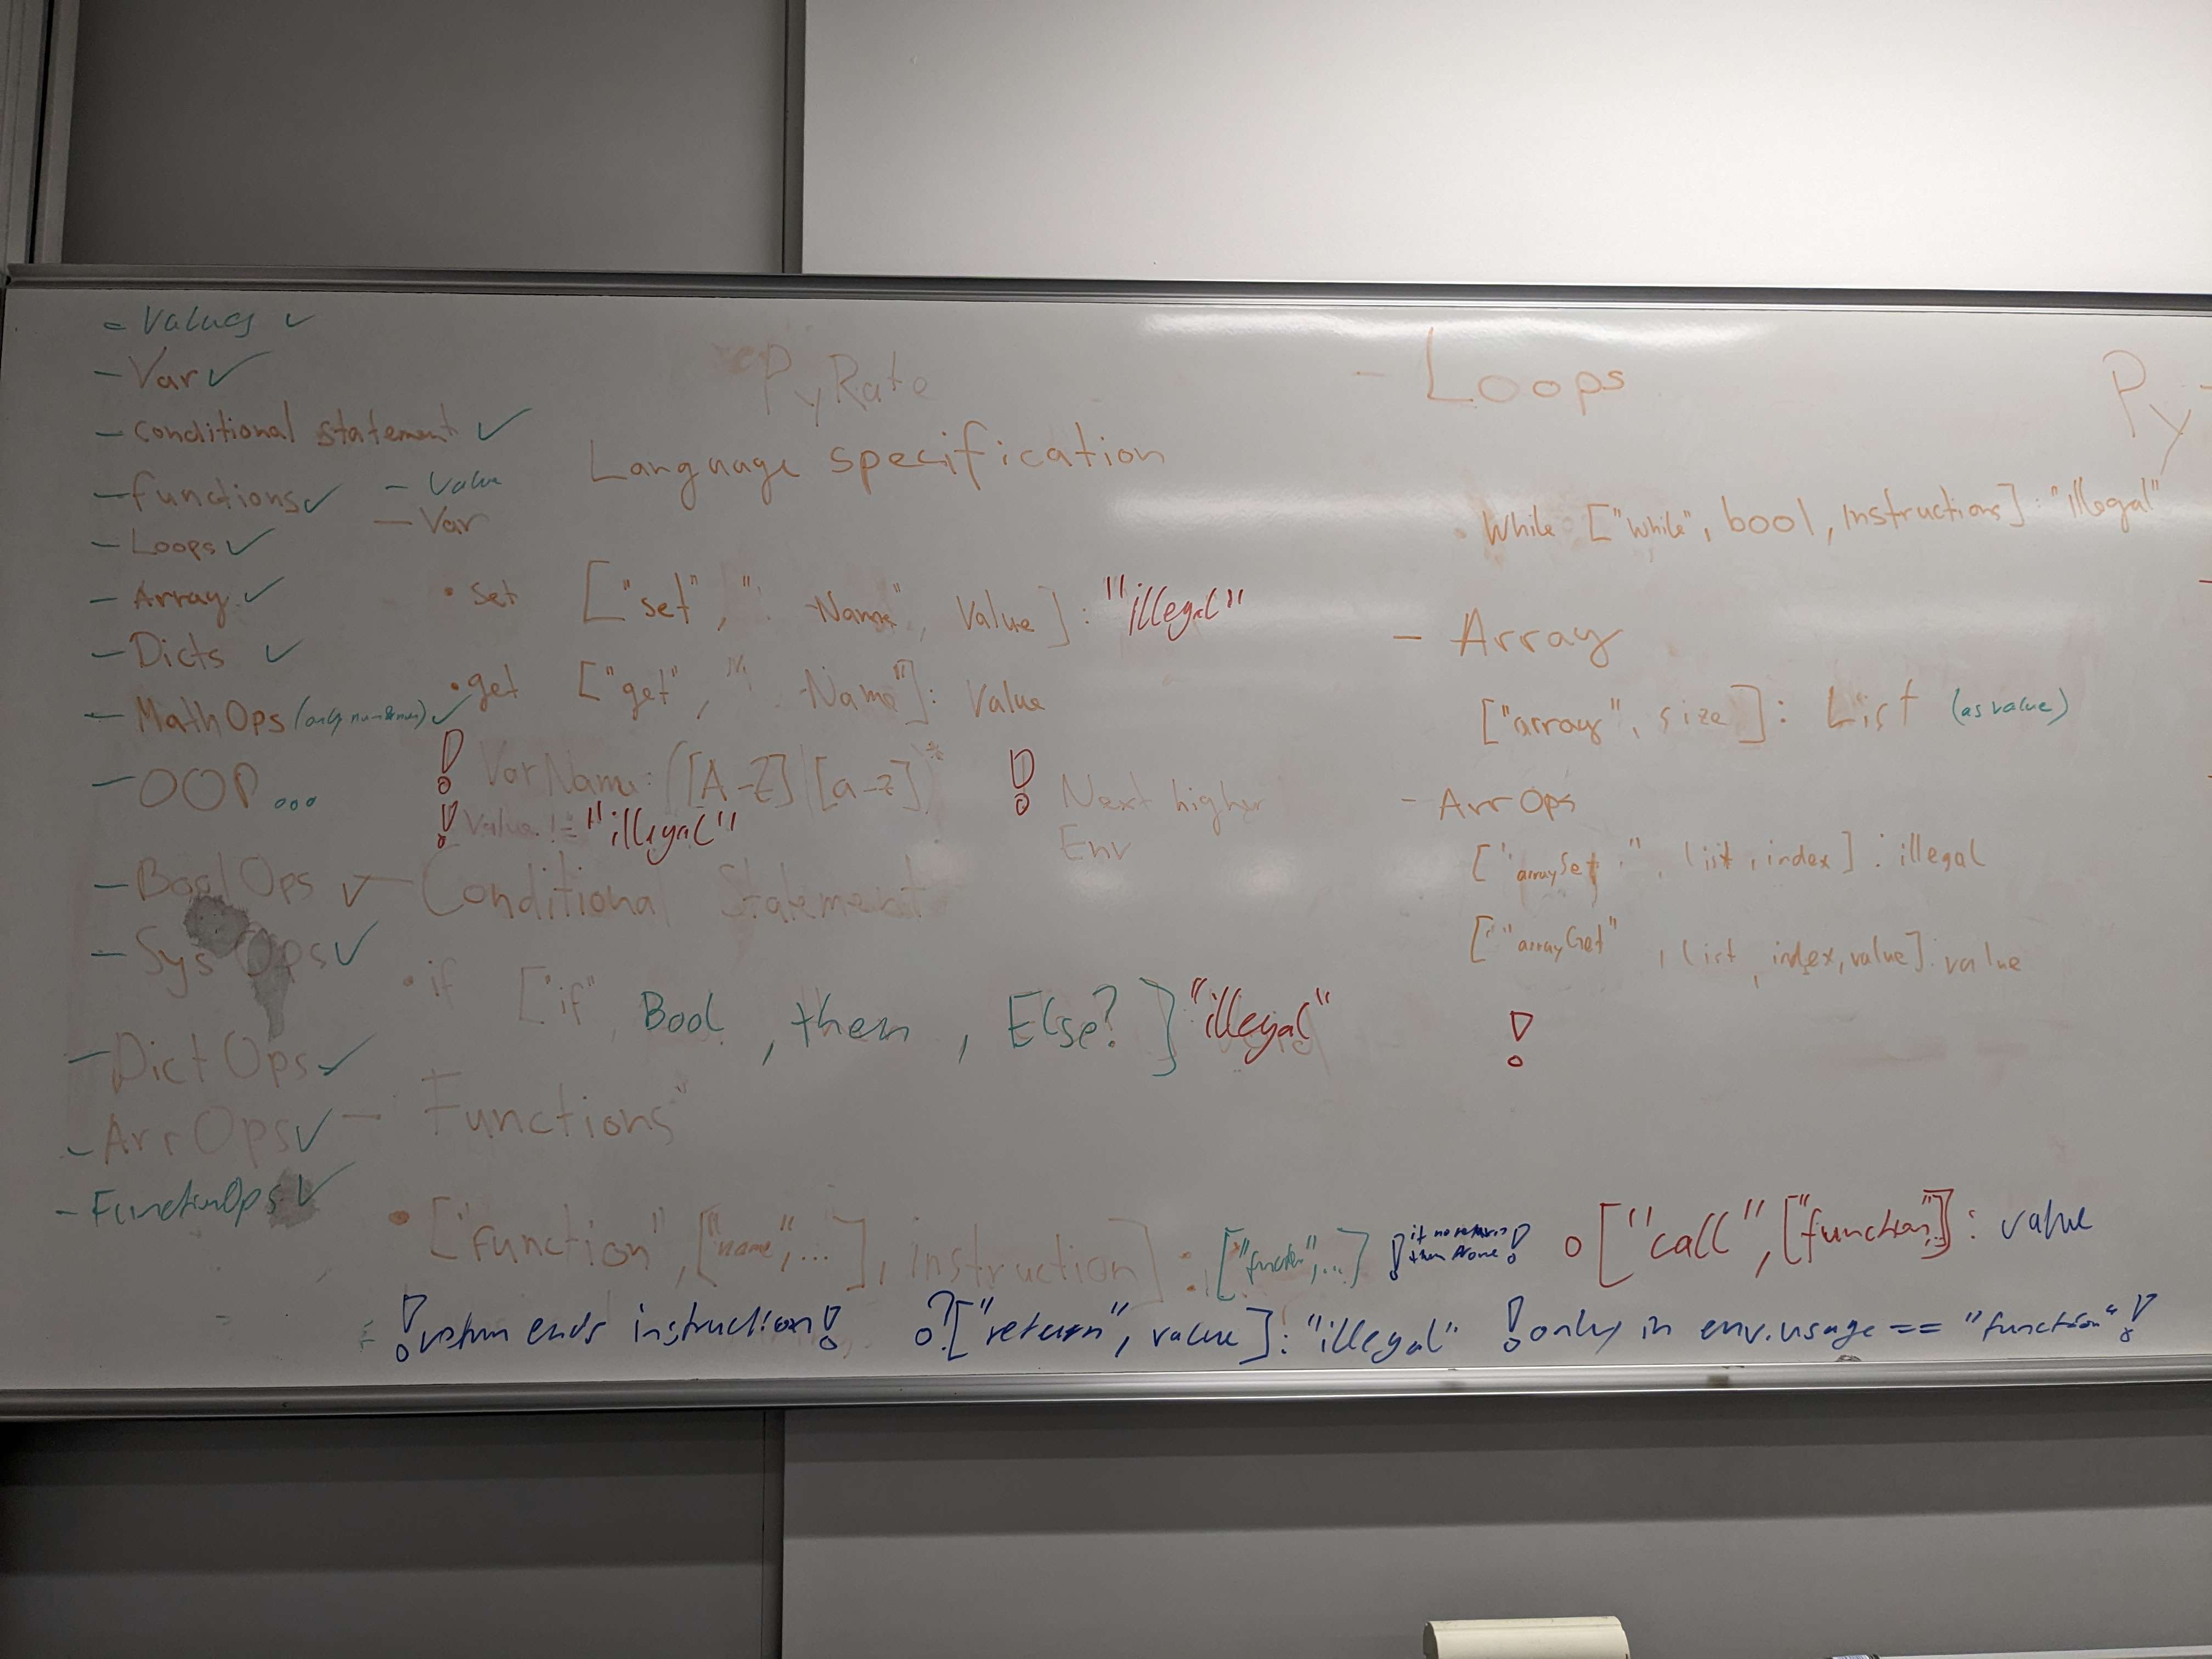 - Values ✓
- Var ✓
- Conditional statement ✓
- functions ✓
- Loops ✓
- Array ✓
- Dicts ✓
- MathOps (only num&num) ✓
- OOP...
- BoolOps ✓
- SysOps ✓
- DictOps ✓
- ArrOps ✓
- FunctionOps ✓
PyRate
Language specification
- Value
- Var
• set ["set", " Name", Value]: "illegal"
• get ["get", " Name"]: Value
! VarName: ([A-Z]|[a-z])*
! Next higher
Env
! Value != "illegal"
- Conditional Statement
• if ["if" Bool, then, Else?] "illegal"
- Functions
• ["function", ["name",...], instruction]: ["function",...]
! if no return
then None !
• ["call", ["function"]]: value
! return ends instruction !
["return", value]: "illegal" ! only in env.usage == "function" !
- Loops
• While ["while", bool, instructions]: "illegal"
- Array
["array", size]: List (as value)
- ArrOps
["arraySet", list, index]: illegal
["arrayGet", list, index, value]: value
!
Py